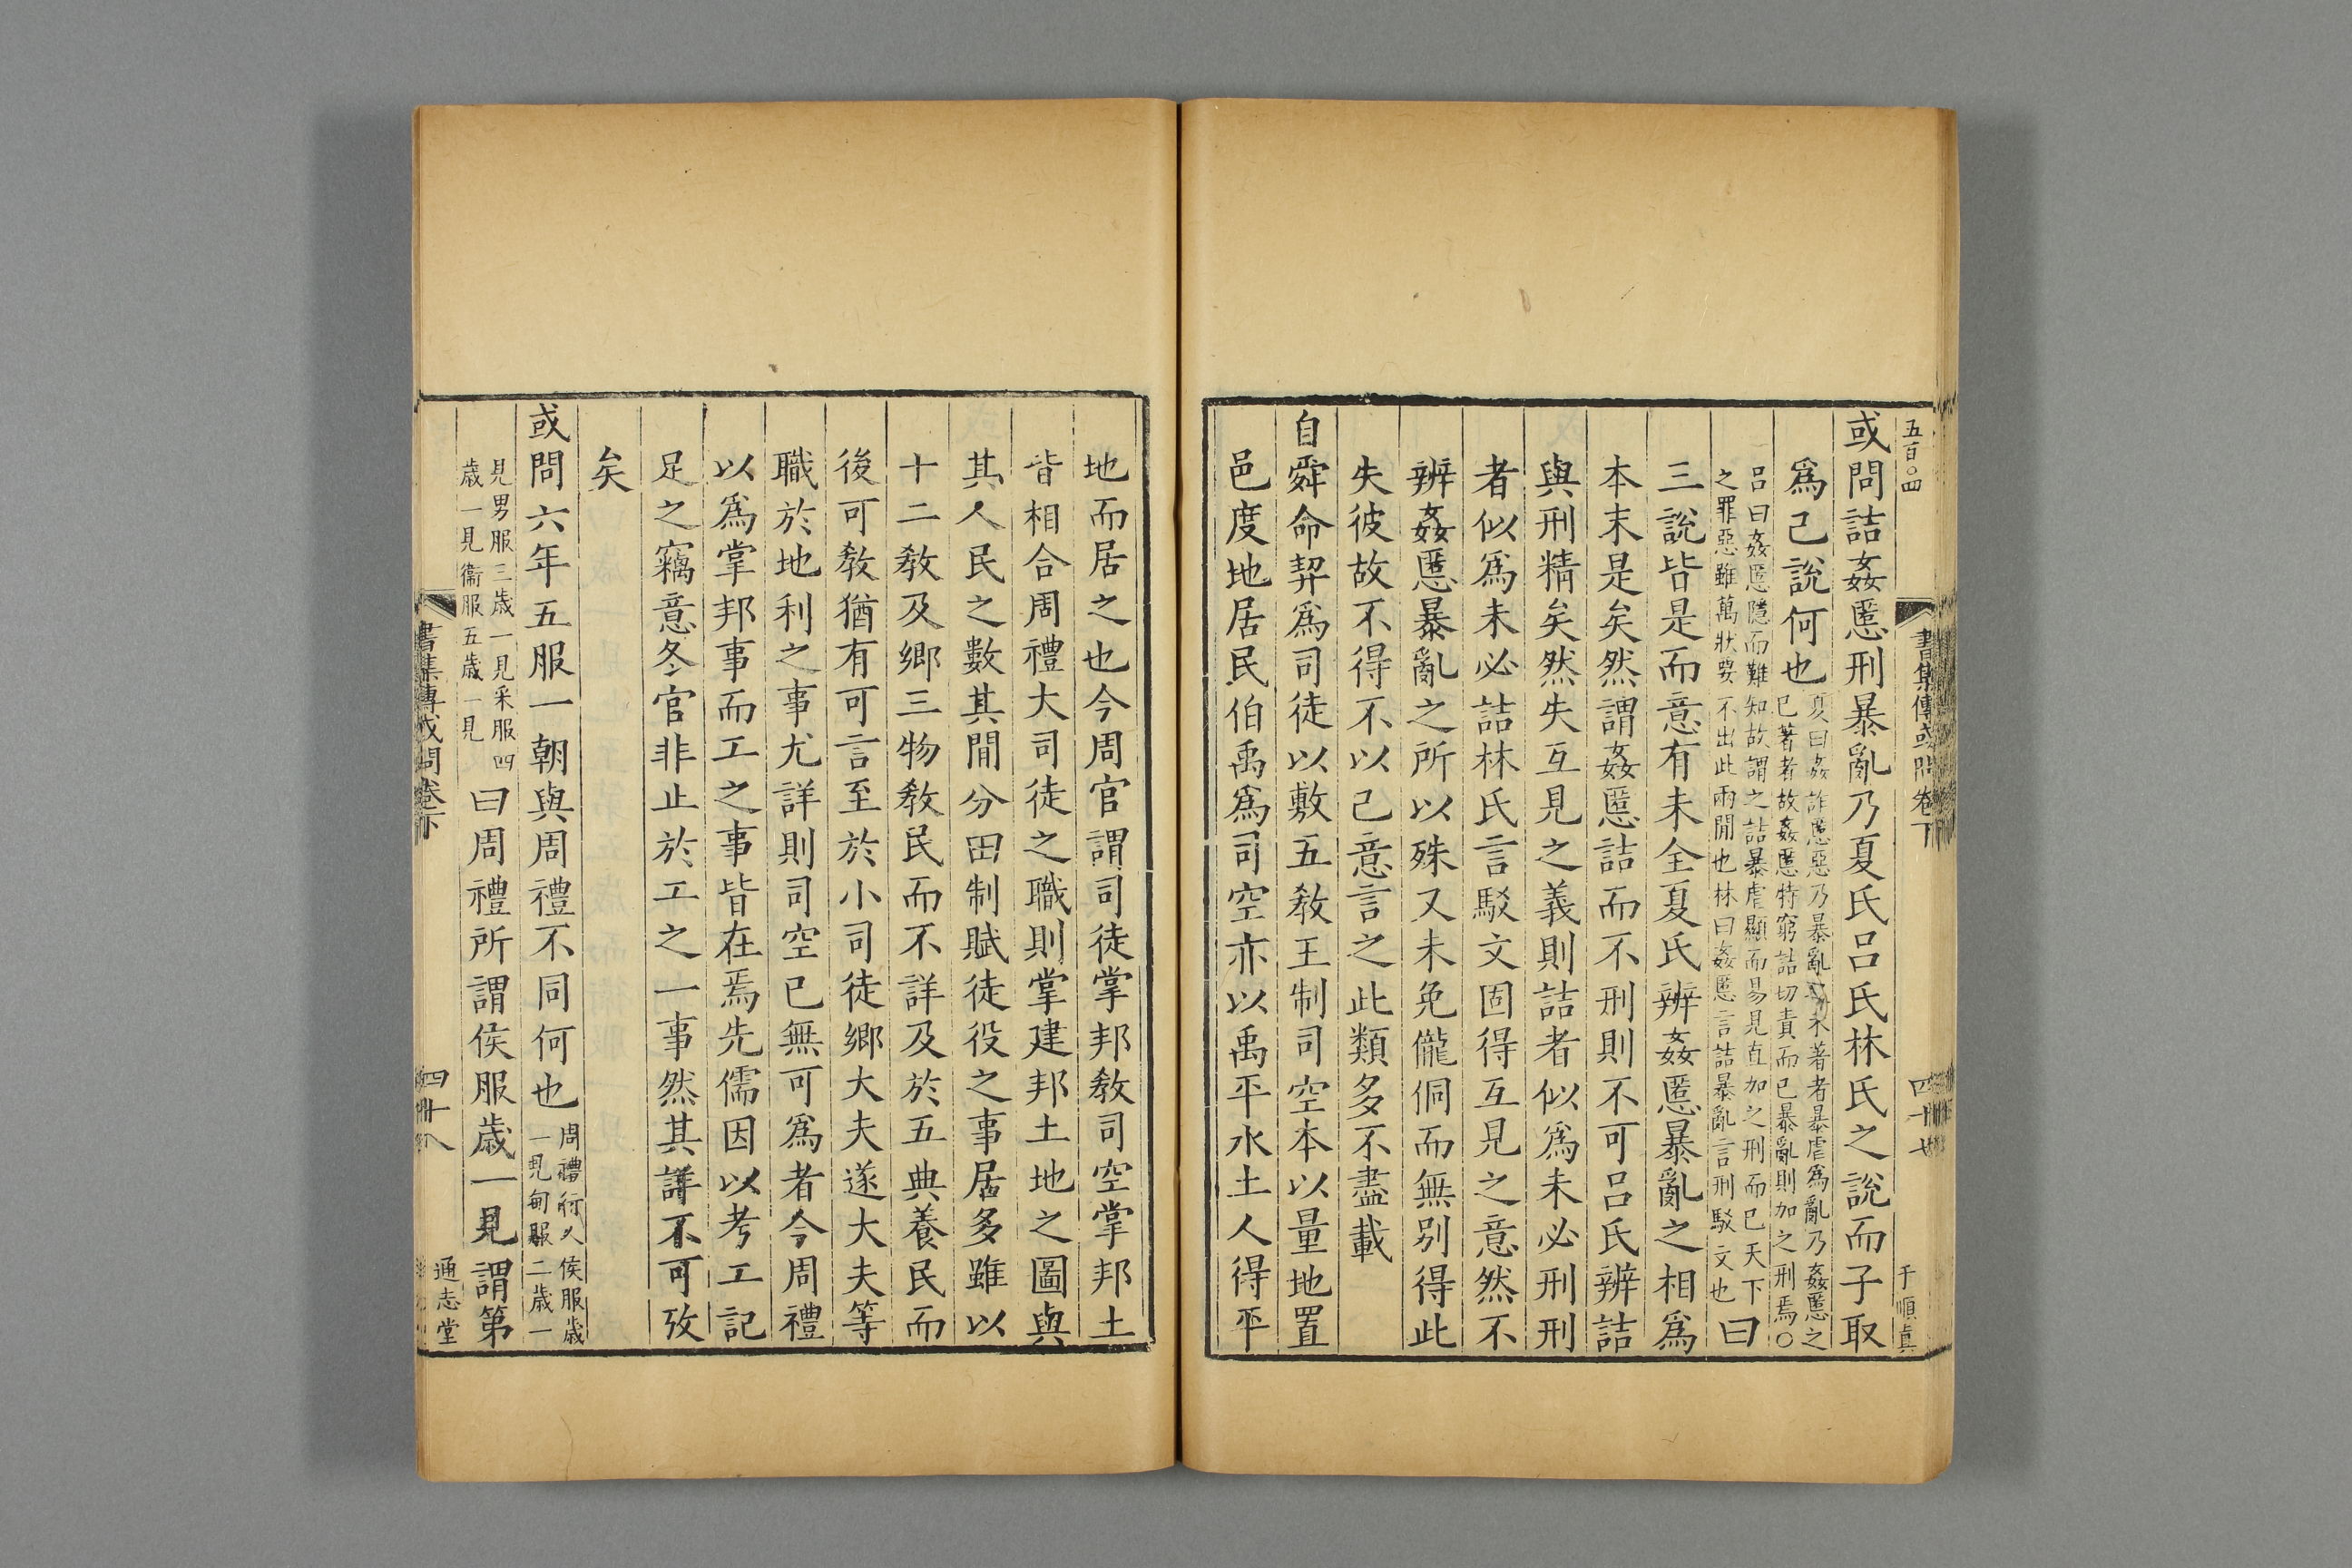 五百〇四
書集傳或問卷下
四十七
于順真
或問詰姦慝刑暴亂乃夏氏呂氏林氏之說而子取
爲己說何也
夏曰姦詐慝惡乃暴亂之未著者暴虐爲亂乃姦慝之
已著者故姦慝特窮詰切責而已暴亂則加之刑焉〇
呂曰姦慝隱而難知故謂之詰暴虐顯而易見直加之刑而已天下
之罪惡雖萬狀要不出此兩閒也林曰姦慝言詰暴亂言刑駁文也
曰
三說皆是而意有未全夏氏辨姦慝暴亂之相爲
本末是矣然謂姦慝詰而不刑則不可呂氏辨詰
與刑精矣然失互見之義則詰者似爲未必刑刑
者似爲未必詰林氏言駁文固得互見之意然不
辨姦慝暴亂之所以殊又未免儱侗而無別得此
失彼故不得不以己意言之此類多不盡載
自舜命契爲司徒以敷五教王制司空本以量地置
邑度地居民伯禹爲司空亦以禹平水土人得平
地而居之也今周官謂司徒掌邦教司空掌邦土
皆相合周禮大司徒之職則掌建邦土地之圖與
其人民之數其間分田制賦徒役之事居多雖以
十二教及鄉三物教民而不詳及於五典養民而
後可教猶有可言至於小司徒鄉大夫遂大夫等
職於地利之事尤詳則司空已無可爲者今周禮
以爲掌邦事而工之事皆在焉先儒因以考工記
足之竊意冬官非止於工之一事然其詳不可攷
矣
或問六年五服一朝與周禮不同何也
周禮行人侯服歲
一見甸服二歲一
見男服三歲一見采服四
歲一見衞服五歲一見
曰周禮所謂侯服歲一見謂第
書集傳或問卷下
四十八
通志堂